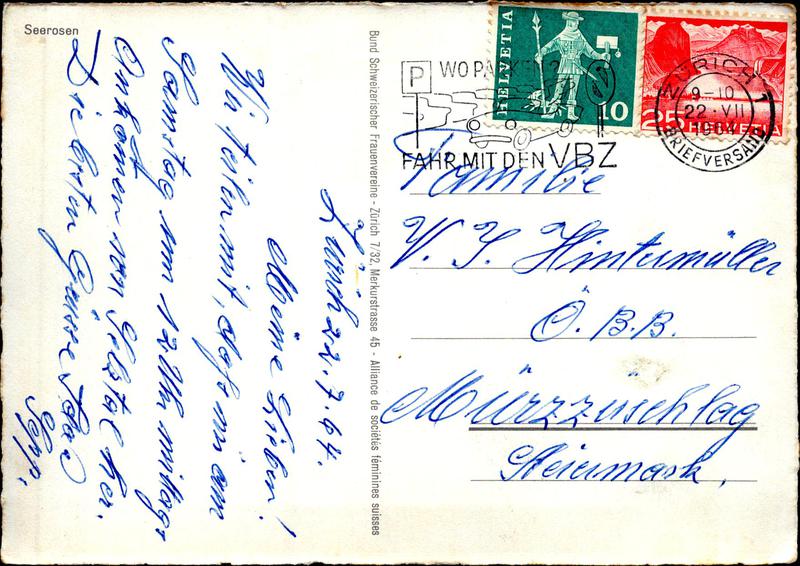 Seerosen
Zürich 22.7.64.
Meine Lieben!
Wir teilen mit, daß wir am
Samstag um 12 Uhr mittags
von Selztal her.
Die besten Grüsse
Sepp.
Bund Schweizerischer Frauenvereine - Zürich 7/32, Merkurstrasse 45 - Alliance de sociétés féminines suisses
HELVETIA
10
25
HELVETIA
P
WO PARKEN?
FAHR MIT DEN VBZ
ZÜRICH 1
9-10
22. VII
1964
BRIEFVERSAND
Familie
V. J. Hintermüller
Ö. B. B.
Mürzzuschlag
Steiermark.